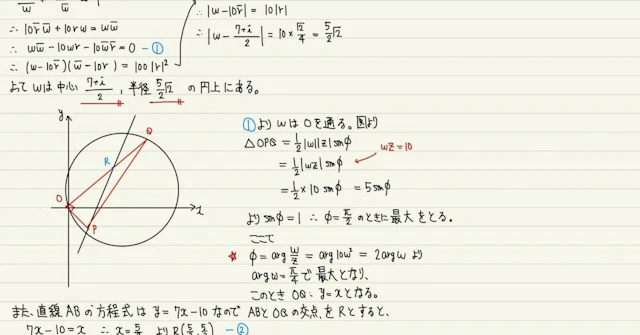 ∴ 10r̄w̄ + 10rw = ww̄
∴ ww̄ - 10wr - 10w̄r̄ = 0 - ①
∴ (w-10r̄)(w̄-10r) = 100|r|²
∴ |w-10r̄| = 10|r|
∴ |w - (7+i)/2| = 10 × √2/4 = 5/2√2
よって wは 中心 (7+i)/2, 半径 5/2√2 の円上にある。
y
Q
R
O
P
x
①より wは Oを通る。図より
△OPQ = 1/2|w||z|sinφ
= 1/2|wz|sinφ
wz=10
= 1/2×10 sinφ = 5sinφ
より sinφ=1 ∴ φ=π/2 のときに最大をとる。
ここで
☆ φ = arg w/z = arg 10w² = 2arg w より
arg w = π/4 で 最大となり、
このとき OQ: y=x となる。
また、直線 AB の方程式は y=7x-10 なので ABとOQの交点をRとすると、
7x-10=x
- ②